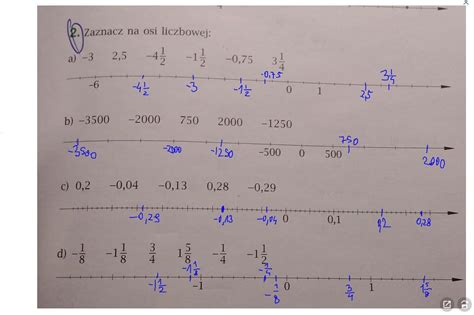 2. Zaznacz na osi liczbowej:
a) -3 2,5 -4 1/2 -1 1/2 -0,75 3 1/4
-0,75 3 1/4
-6 -4 1/2 -3 -1 1/2 0 1 2,5
b) -3500 -2000 750 2000 -1250
750
-3500 -2000 -1250 -500 0 500 2000
c) 0,2 -0,04 -0,13 0,28 -0,29
-0,29 -0,13 -0,04 0 0,1 0,2 0,28
d) -1/8 -1 1/8 3/4 1 5/8 -1/4 -1 1/2
-1 1/8 -1/4
-1 1/2 -1 -1/8 0 3/4 1 1 5/8